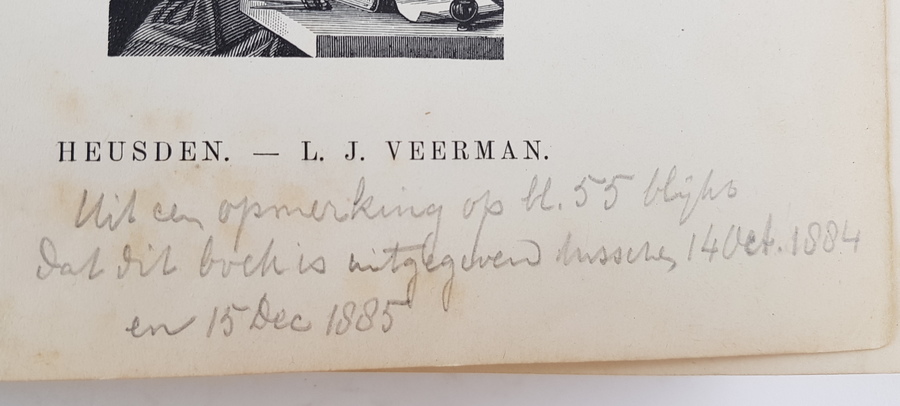 HEUSDEN. — L. J. VEERMAN.
Uit een opmerking op bl. 55 blijkt
dat dit boek is uitgegeven tusschen 14 Oct. 1884
en 15 Dec 1885